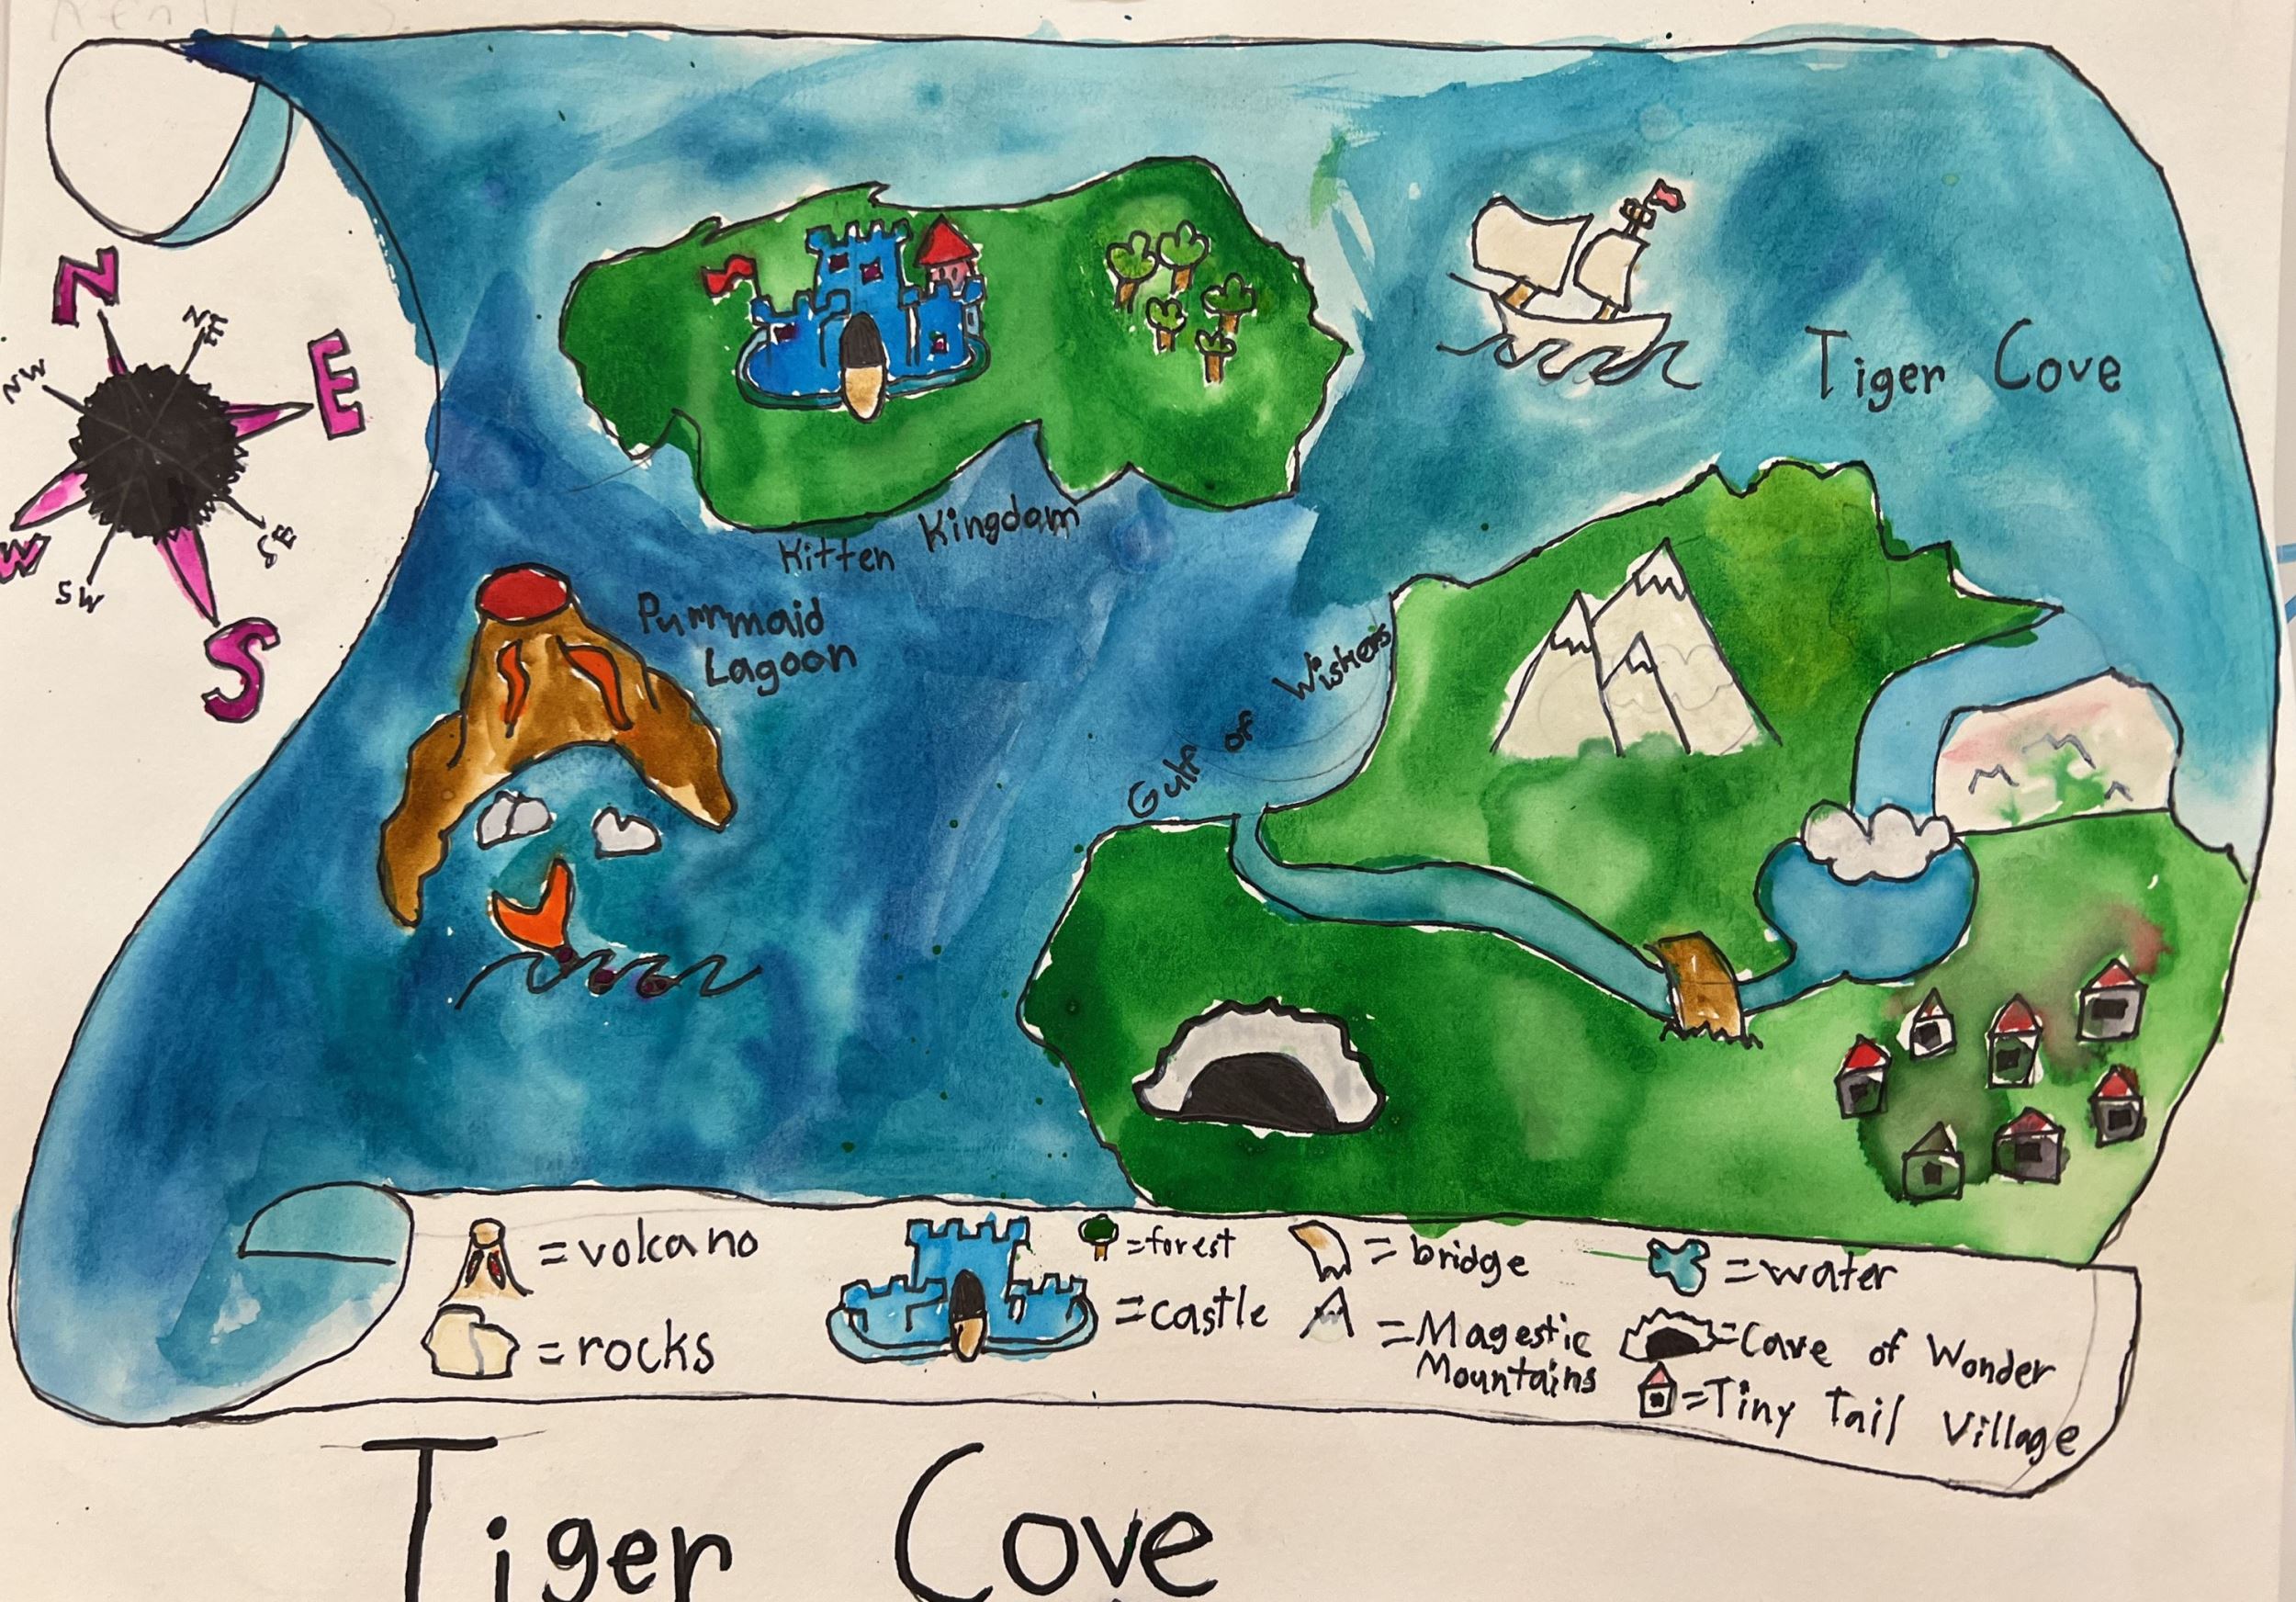 N
NE
E
SE
S
SW
W
NW
Tiger Cove
Kitten Kingdom
Purrmaid
Lagoon
Gulf of Wiskers
=volcano
=rocks
=forest
=castle
=bridge
=Magestic
Mountains
=water
=Cave of Wonder
=Tiny Tail Village
Tiger Cove